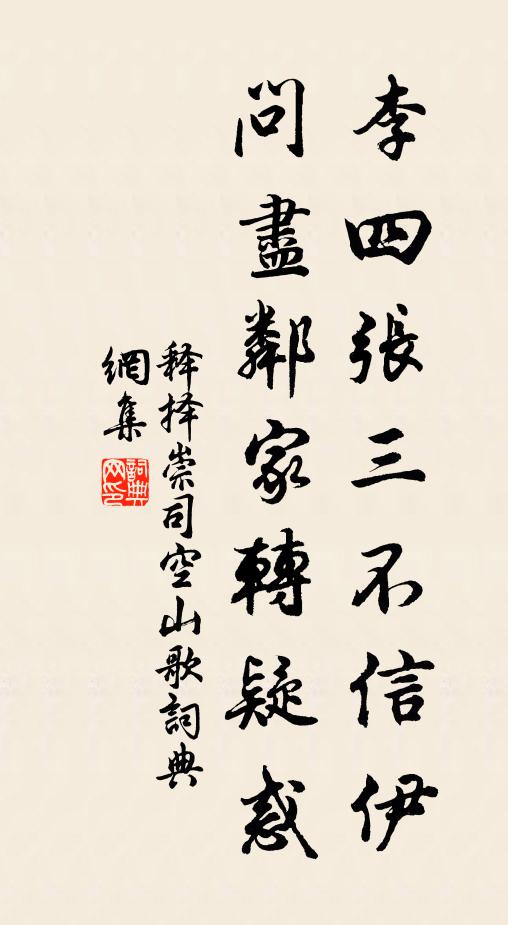 李四張三不信伊
問盡鄰家轉疑惑
释择崇司空山歌詞典
網集
詞典网印